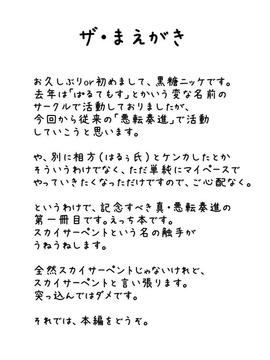 ザ・まえがき
お久しぶりor初めまして、黒糖ニッケです。
去年は「ぱるてもす」とかいう変な名前の
サークルで活動しておりましたが、
今回から従来の「愚転奏進」で活動
していこうと思います。
や、別に相方(はるぅ氏)とケンカしたとか
そういうわけでなく、ただ単純にマイペースで
やっていきたくなっただけですので、ご心配なく。
というわけで、記念すべき真・愚転奏進の
第一冊目です。えっち本です。
スカイサーペントという名の触手が
うねうねします。
全然スカイサーペントじゃないけれど、
スカイサーペントと言い張ります。
突っ込んではダメです。
それでは、本編をどうぞ。